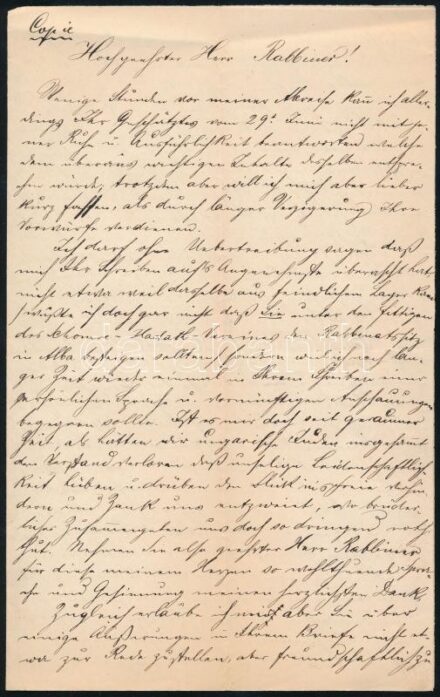 Copie
Hochgeehrter Herr Rabbiner!
Wenige Stunden vor meiner Abreise kann ich aller-
dings Ihr Geschätztes vom 29t Juni nicht mit je-
ner Ruhe u. Ausführlichkeit beantworten welche
dem überaus wichtigen Inhalte desselben entspre-
chen würde, trotzdem aber will ich mich aber lieber
kurz fassen, als durch länger Verzögerung Ihre
Vorwürfe verdienen.
Ich darf ohne Uebertreibung sagen daß
mich Ihr Schreiben aufs Angenehmste überrascht hat
nicht etwa weil dasselbe aus feindlichem Lager kam
wußte ich doch gar nicht daß Sie unter den Fittigen
des Schomre-Hadath Vereines den Rabbinatssitz
in Alba besteigen sollten, sondern weil ich nach lan-
ger Zeit wieder einmal in Ihrem Schreiben einer
persönlichen Sprache u. vernünftigen Anschauungen
begegnen sollte. Ist es mir doch seit geraumer
Zeit, als hätten wir ungarische Juden insgesamt
den Verstand verloren daß unselige Leidenschaftlich-
keit hüben u. drüben den Blick
und Zank uns entzweit, wo brüder-
liches Zusammengehen uns doch so dringend noth
thut. Nehmen Sie also geehrter Herr Rabbiner
für diese meinem Herzen so wohlthuende Spra-
che und Gesinnung meinen herzlichsten Dank.
Zugleich erlaube ich mir aber Sie über
einige Äußerungen in Ihrem Briefe nicht et-
wa zur Rede zu stellen, aber freundschaftlich zu
darabanth